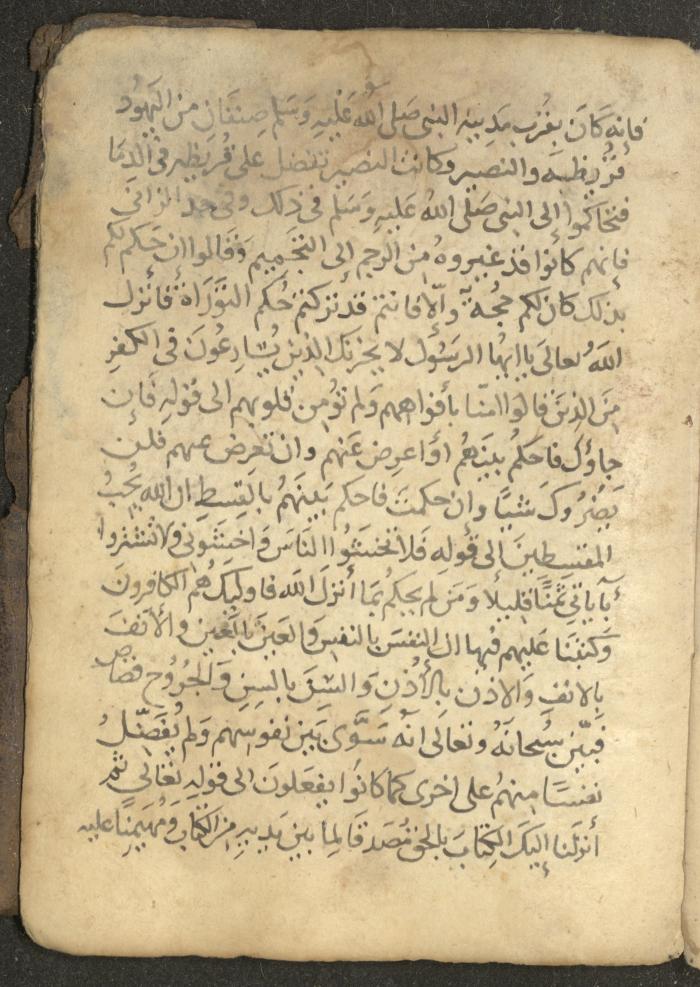 فإنه كَانَ بقُرْبِ مَدِينه النبى صَلى اللهُ عَليْهِ وَسَلم صِنفَانِ من اليَهُود
قُرَّيظَه والنصير وكانت النصير تفضل على قُريظه فى الدِمَا
فتحاكموا إلى النبى صَلى اللهُ عَليهِ وَسَلم فى ذلك وفى حد الزانى
فإنهم كانوا قد غيروهُ مِن الرجم إلى التحَميم وَقالوا إن حَكم لكم
بذلك كان لكم حُجة وإلّا فانتم قد تركتم حُكم التوْرَاة فأنزل
اللهُ تعالى يا ايها الرسُول لا يحزنك الذين يُسَارعُونَ فى الكفرِ
مِنَ الذين قالوا امنّا بأفواههم وَلم تؤمِن قلوبهم الى قولهِ فَإن
جاؤك فاحكمُ بينَهمُ اوَ اعرض عَنهم وان تعرض عنهم فلن
يَضُرُوكَ شَيًا وان حكمتَ فاحكم بَينَهُم بالقِسطِ ان الله يُحِبُ
المقسطينَ الى قوله فَلا تخشَوُا النَاسَ وَاخشَوْنى ولا تشتروا
بآياتى ثمَنًا قليلًا وَمَن لم يحكمُ بمَا أنزلَ الله فاوليكَ هُم الكافرونَ
وكتبنَا عَليهم فيها ان النفسَ بالنفسِ وَالعَينَ بالعَينِ والأنفَ
بالانفِ وَالاذن بالأذُنِ وَالسِنَ بالسِنِ وَالجُرُوْحَ قصَاص
فبيّن سُبحَانَهُ وتعَالى انهُ سَوَّى بَين نفوسهم وَلم يُفَضّلُ
نفسًا منهمُ على اخرى كما كانُوا يفعَلونَ الى قولهِ تعَالى ثمّ
أنزلنا إليكَ الكِتابَ بالحق مُصَدقًا لِما بين يَديهِ من الكِتابِ وَمُهيمنًا عليه